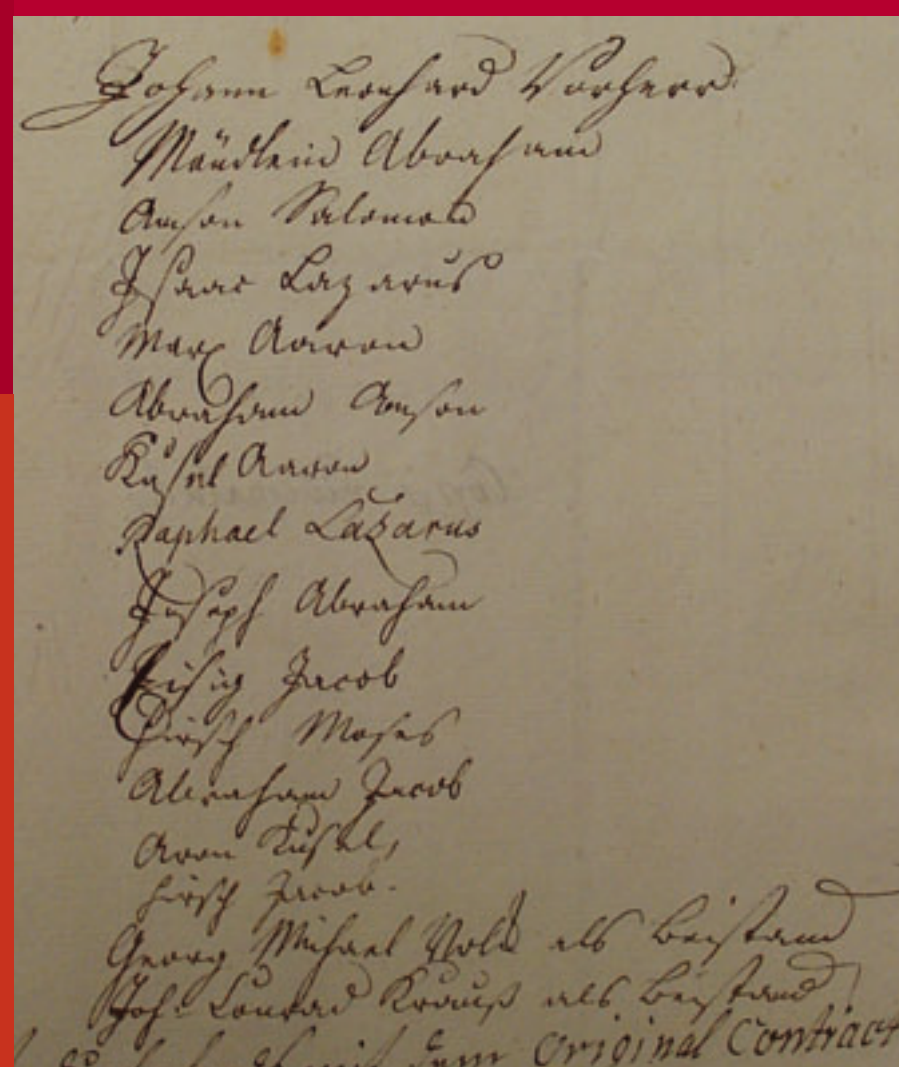 Johann Leonhard Vorherr
Mändlein Abraham
Amson Salomon
Isaac Lazarus
Marx Aaron
Abraham Amson
Kusel Aaron
Raphael Lazarus
Joseph Abraham
Eisig Jacob
Hirsch Moses
Abraham Jacob
Aron Kusel,
Hirsch Jacob.
Georg Michael Volk als Beistand
Joh: Conrad Krauß als Beistand
mit dem Original Contract